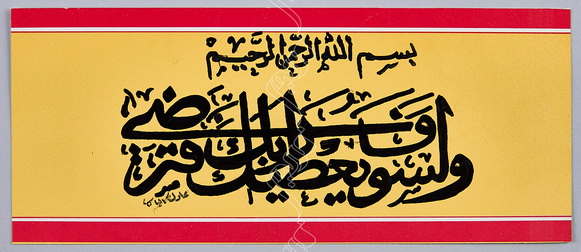 بسم الله الرحمن الرحيم
ولسوف يعطيك ربك فترضى